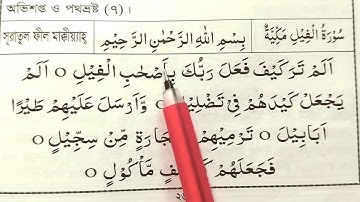 অভিশপ্ত ও পথভ্রষ্ট (৭)।
সূরাতুল ফীল মাক্কীয়্যাহ্ بِسْمِ اللهِ الرَّحْمٰنِ الرَّحِيْمِ سُوْرَةُ الْفِيْلِ مَكِّيَّةٌ
اَلَمْ تَرَ كَيْفَ فَعَلَ رَبُّكَ بِاَصْحٰبِ الْفِيْلِ ○ اَلَمْ
يَجْعَلْ كَيْدَهُمْ فِيْ تَضْلِيْلٍ ○ وَّاَرْسَلَ عَلَيْهِمْ طَيْرًا
اَبَابِيْلَ ○ تَرْمِيْهِمْ بِحِجَارَةٍ مِّنْ سِجِّيْلٍ ○
فَجَعَلَهُمْ مَّاْكُوْلٍ ○